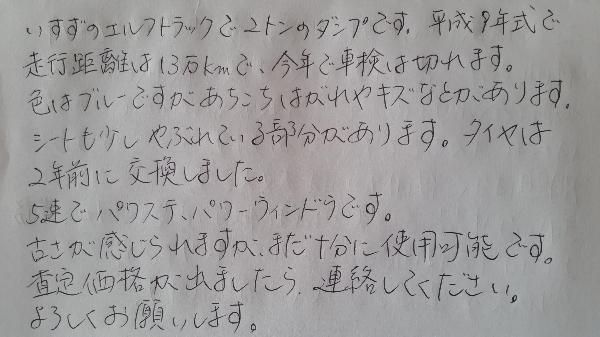 いすずのエルフトラックで2トンのダンプです。平成9年式で
走行距離は13万kmで、今年で車検は切れます。
色はブルーですがあちこちはがれやキズなどがあります。
シートも少しやぶれている部分があります。タイヤは
2年前に交換しました。
5速でパワステ、パワーウィンドウです。
古さが感じられますが、まだ十分に使用可能です。
査定価格が出ましたら、連絡してください。
よろしくお願いします。